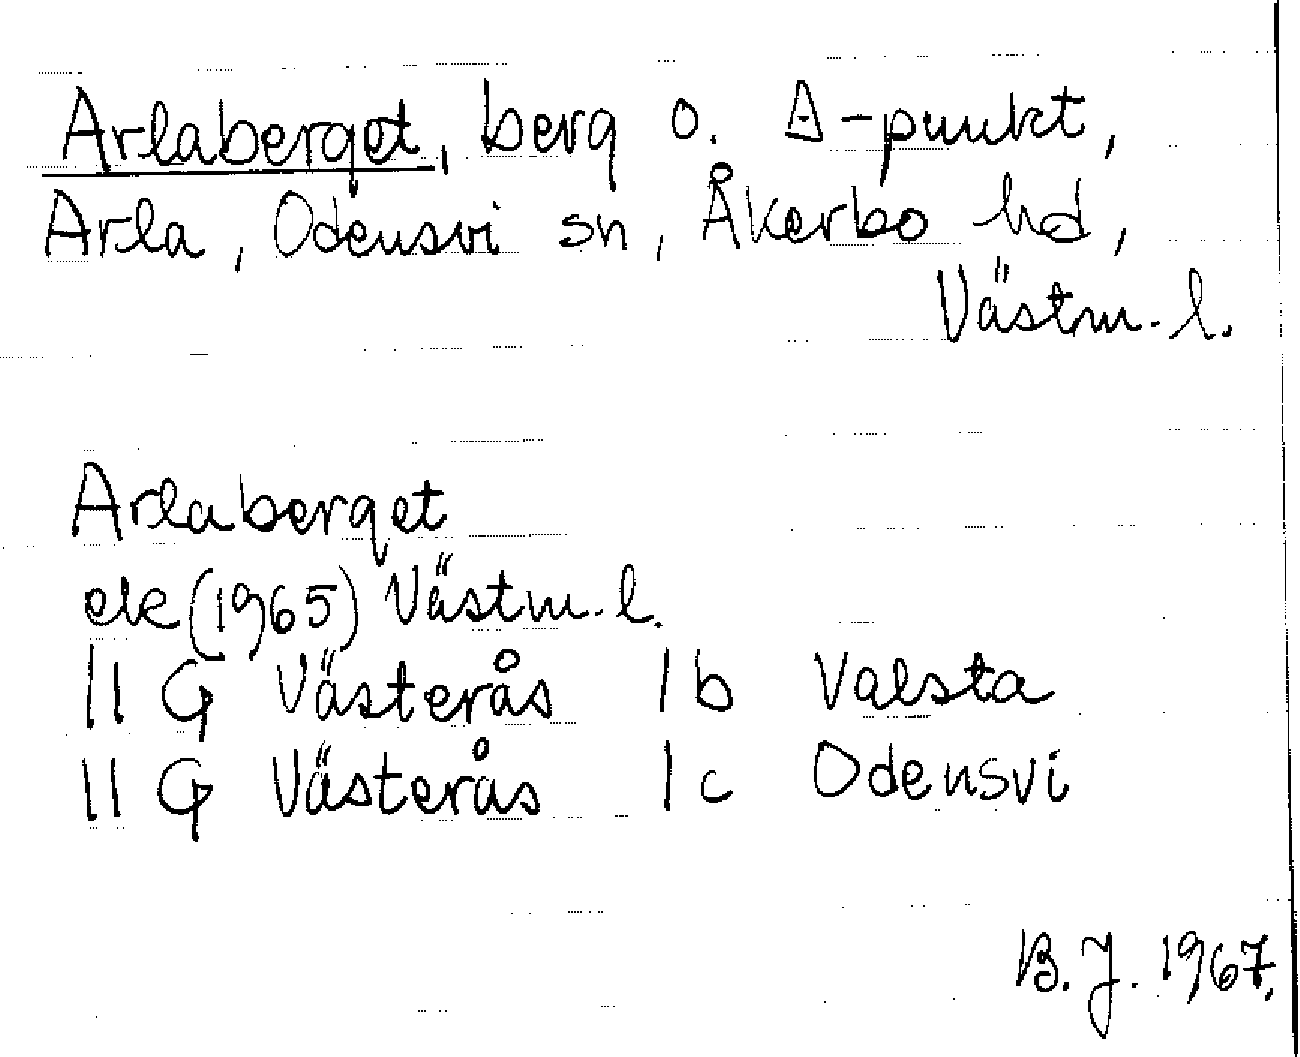 Arlaberget, berg o. △-punkt,
Arla, Odensvi sn, Åkerbo hd,
Västm. l.
Arlaberget
ek (1965) Västm. l.
11 G Västerås 1 b Valsta
11 G Västerås 1 c Odensvi
B. J. 1967.